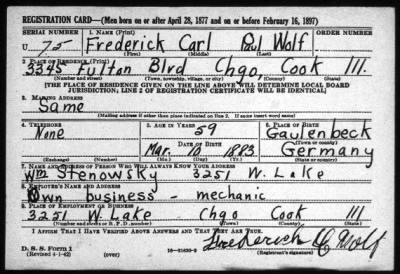 REGISTRATION CARD—(Men born on or after April 28, 1877 and on or before February 16, 1897)
SERIAL NUMBER 1. NAME (Print) ORDER NUMBER
U 75 Frederick Carl Paul Wolf
(First) (Middle) (Last)
2. PLACE OF RESIDENCE (Print)
3345 Fulton Blvd Chgo, Cook Ill.
(Number and street) (Town, township, village, or city) (County) (State)
[THE PLACE OF RESIDENCE GIVEN ON THE LINE ABOVE WILL DETERMINE LOCAL BOARD
JURISDICTION; LINE 2 OF REGISTRATION CERTIFICATE WILL BE IDENTICAL]
3. MAILING ADDRESS
Same
[Mailing address if other than place indicated on line 2. If same insert word same]
4. TELEPHONE 5. AGE IN YEARS 6. PLACE OF BIRTH
None 59 Gaulenbeck
DATE OF BIRTH (Town or county)
Mar. 18 1883 Germany
(Exchange) (Number) (Mo.) (Day) (Yr.) (State or country)
7. NAME AND ADDRESS OF PERSON WHO WILL ALWAYS KNOW YOUR ADDRESS
Wm Stenowsky 3251 W. Lake
8. EMPLOYER'S NAME AND ADDRESS
Own business - mechanic
9. PLACE OF EMPLOYMENT OR BUSINESS
3251 W. Lake Chgo Cook Ill
(Number and street or R. F. D. number) (Town) (County) (State)
I AFFIRM THAT I HAVE VERIFIED ABOVE ANSWERS AND THAT THEY ARE TRUE.
Frederick C Wolf
D. S. S. Form 1
(Revised 4-1-42) (over) (Registrant's signature)